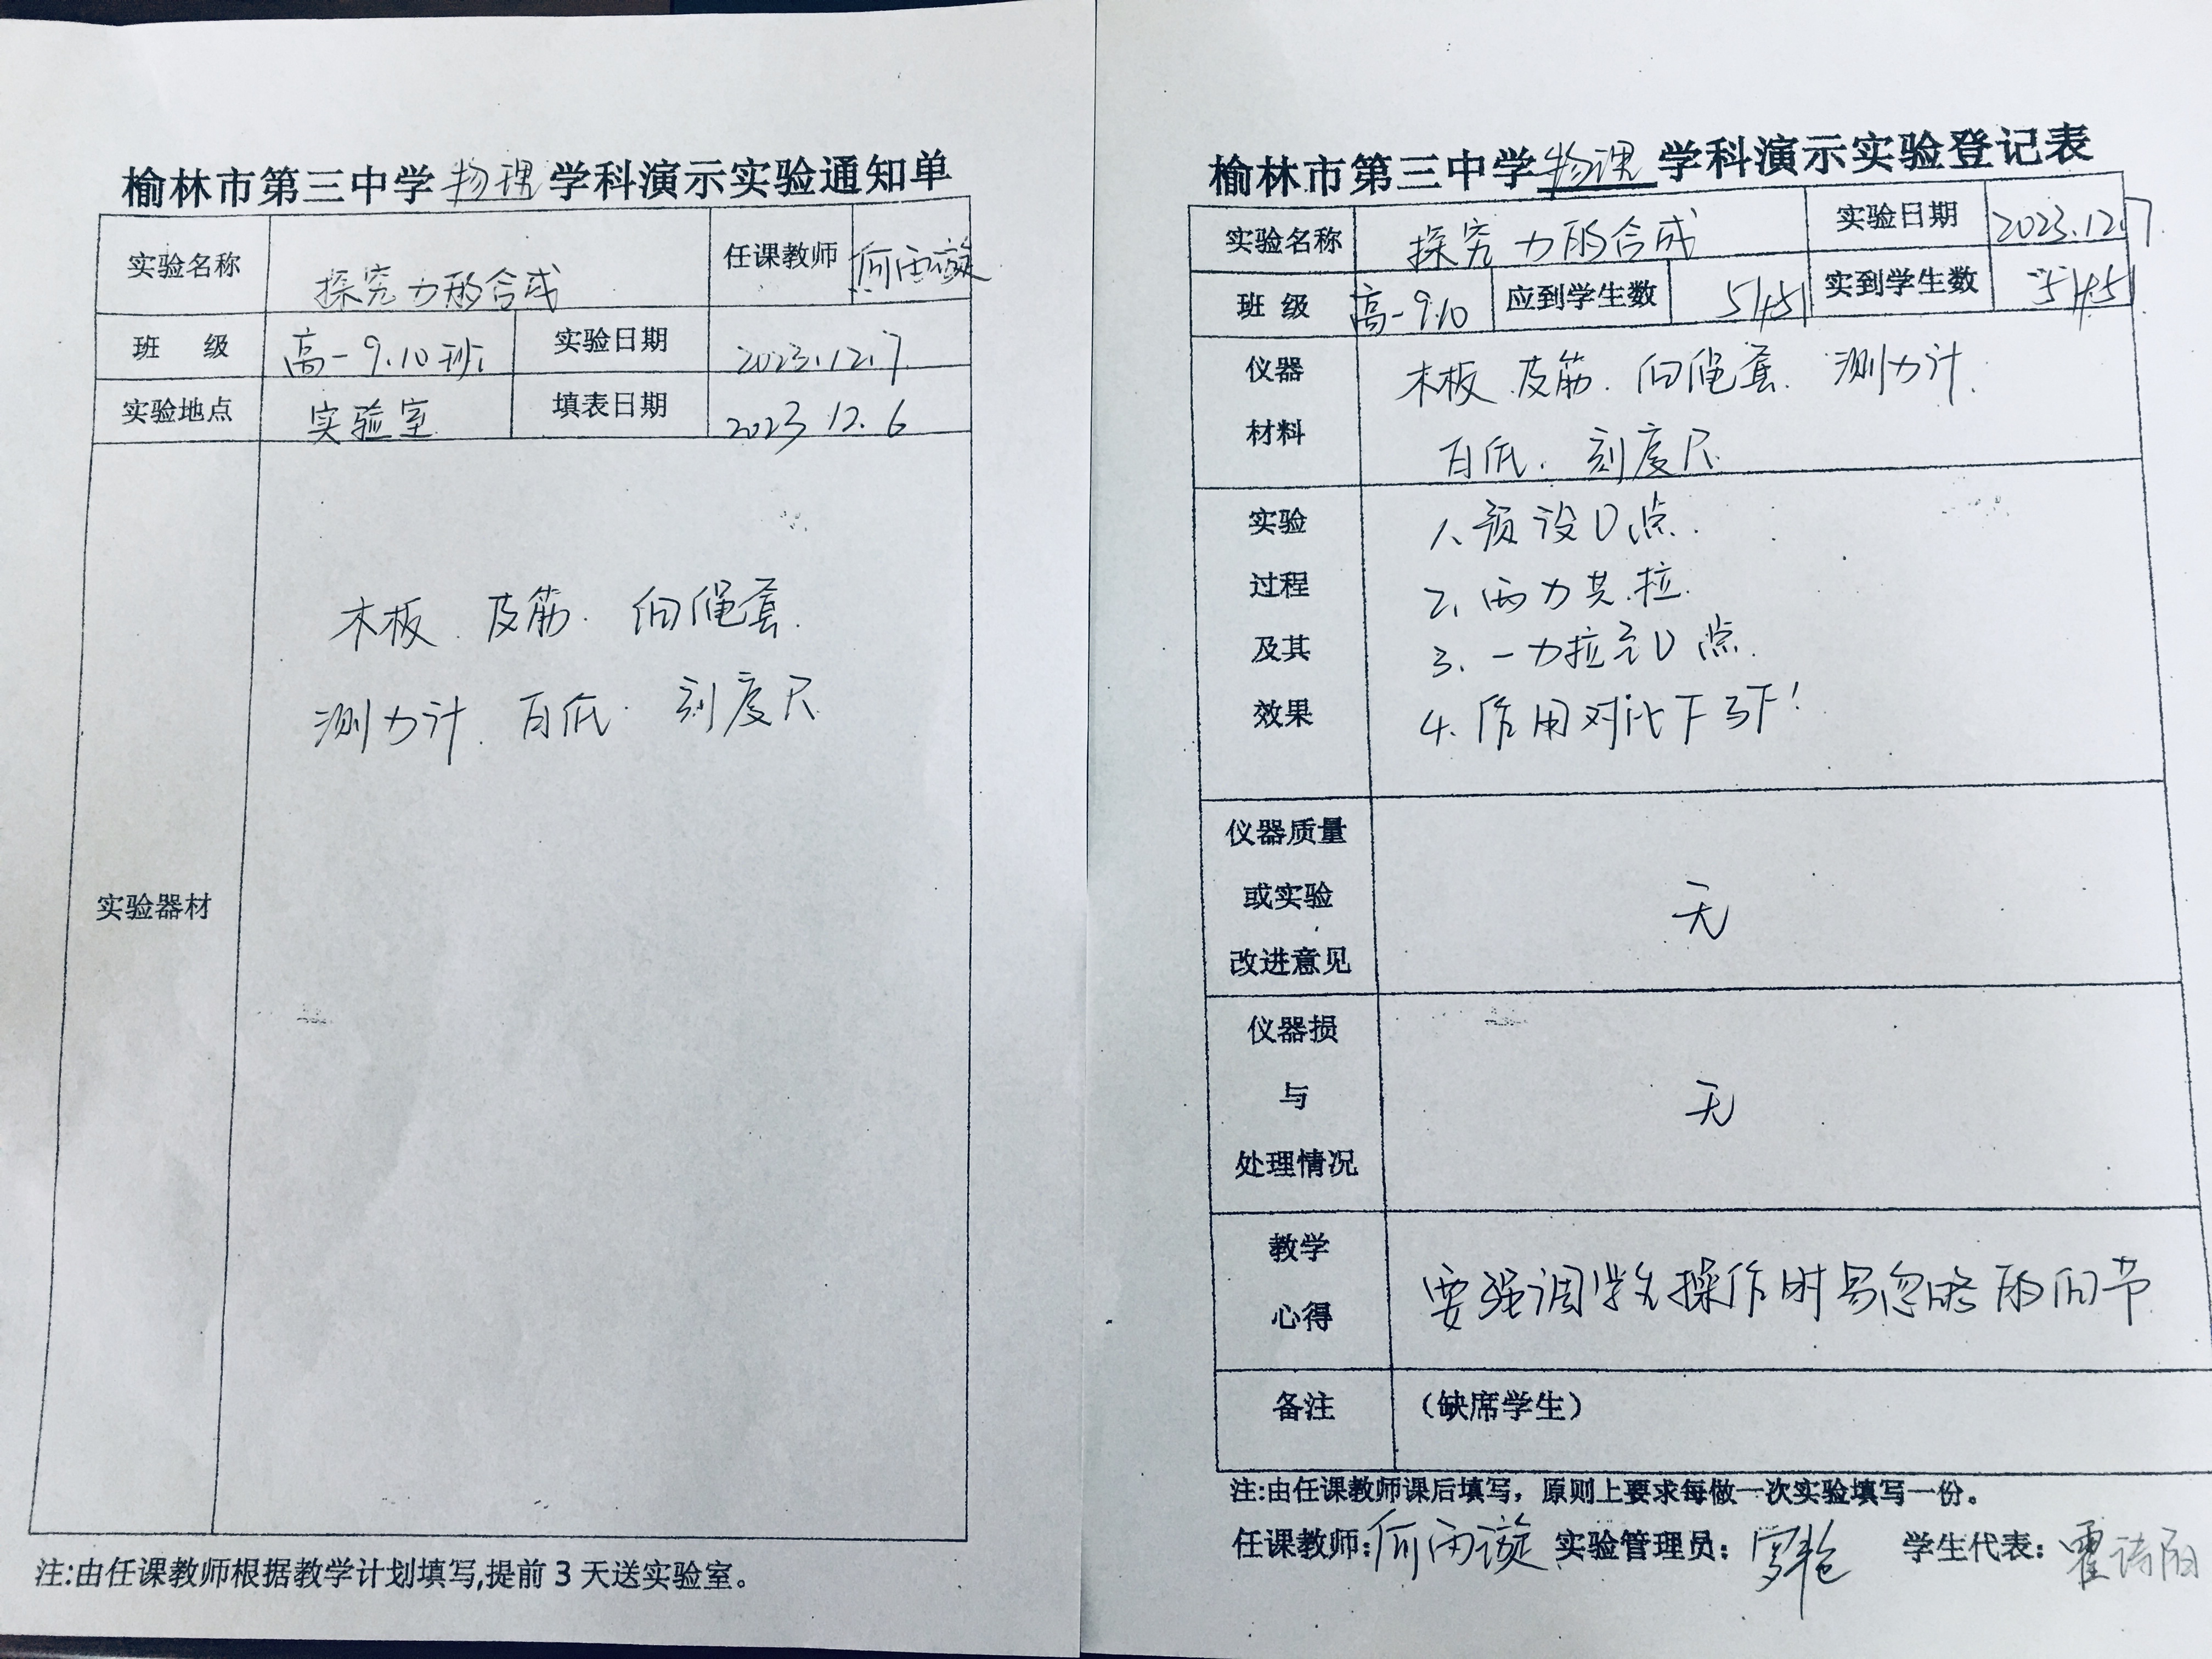 榆林市第三中学物理学科演示实验通知单
实验名称 探究力的合成 任课教师 何雨漩
班 级 高一9.10班 实验日期 2023.12.7
实验地点 实验室 填表日期 2023.12.6
实验器材
木板 皮筋. 细绳套.
测力计. 白纸. 刻度尺
注:由任课教师根据教学计划填写,提前3天送实验室。
榆林市第三中学物理学科演示实验登记表
实验名称 探究力的合成 实验日期 2023.12.7.
班 级 高一9.10 应到学生数 51+51 实到学生数 51+51
仪器 材料
木板 皮筋. 细绳套. 测力计.
白纸. 刻度尺
实验 过程 及其 效果
1、预设O点.
2、两力共拉.
3. 一力拉至O点.
4. 作用对比F与F'
仪器质量 或实验 改进意见
无
仪器损 与 处理情况
无
教学 心得
要强调学生操作时易忽略的细节
备注 （缺席学生）
注:由任课教师课后填写，原则上要求每做一次实验填写一份。
任课教师:何雨漩 实验管理员: 学生代表:霍诗雨